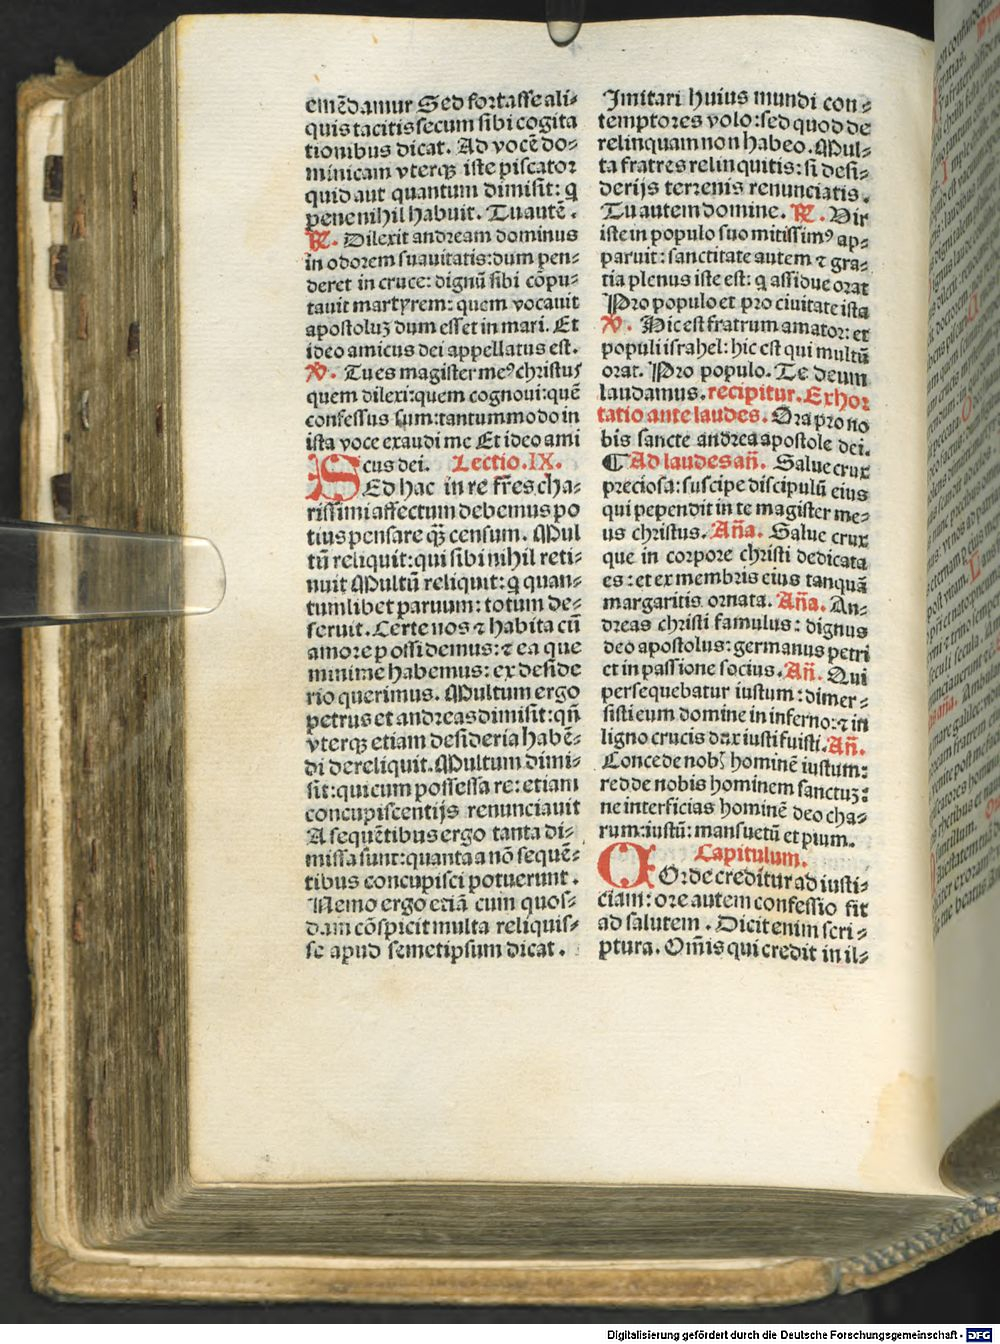 emēdamur Sed fortasse ali⸗
quis tacitis secum sibi cogita
tionibus dicat. Ad vocē do⸗
minicam vterqꝫ iste piscator
quid aut quantum dimisit: ꝗ
pene nihil habuit. Tu autē.
℟. Dilexit andream dominus
in odorem suauitatis: dum pen⸗
deret in cruce: dignū sibi cōpu⸗
tauit martyrem: quem vocauit
apostoluꝫ dum esset in mari. Et
ideo amicus dei appellatus est.
℣. Tu es magister meꝰ christus
quem dilexi: quem cognoui: quē
confessus sum: tantummodo in
ista voce exaudi me Et ideo ami
cus dei. Lectio. IX.
SEd hac in re fr̄es cha⸗
rissimi affectum debemus po
tius pensare qꝫ̄ censum. Mul
tū reliquit: qui sibi nihil reti⸗
nuit Multū reliquit: ꝗ quan⸗
tumlibet paruum: totum de⸗
seruit. Certe nos ⁊ habita cū
amore possidemus: ⁊ ea que
minime habemus: ex deside
rio querimus. Multum ergo
petrus et andreas dimisit: qn̄
vterqꝫ etiam desideria habē⸗
di dereliquit. Multum dimi⸗
sit: qui cum possessa re: etiam
concupiscentijs renunciauit
A sequētibus ergo tanta di⸗
missa sunt: quanta a nō sequē⸗
tibus concupisci potuerunt.
Nemo ergo etiā cum quos⸗
dam cōspicit multa reliquis⸗
se apud semetipsum dicat.
Imitari huius mundi con⸗
temptores volo: sed quod de
relinquam non habeo. Mul⸗
ta fratres relinquitis: si desi⸗
derijs terrenis renunciatis.
Tu autem domine. ℟. Vir
iste in populo suo mitissimꝰ ap⸗
paruit: sanctitate autem ⁊ gra⸗
tia plenus iste est: ꝗ assidue orat
Pro populo et pro ciuitate ista
℣. Hic est fratrum amator: et
populi israhel: hic est qui multū
orat. Pro populo. Te deum
laudamus. recipitur. Exhor
tatio ante laudes. Ora pro no
bis sancte andrea apostole dei.
¶ Ad laudes an̄. Salue crux
preciosa: suscipe discipulū eius
qui pependit in te magister me⸗
us christus. Añа. Salue crux
que in corpore christi dedicata
es: et ex membris eius tanquā
margaritis ornata. Aña. An⸗
dreas christi famulus: dignus
deo apostolus: germanus petri
et in passione socius. An̄. Qui
persequebatur iustum: dimer⸗
sisti eum domine in inferno: ⁊ in
ligno crucis dux iusti fuisti. An̄.
Concede nobꝭ hominē iustum:
redde nobis hominem sanctuꝫ:
ne interficias hominē deo cha⸗
rum: iustū: mansuetū et pium.
Capitulum.
COrde creditur ad iusti⸗
ciam: ore autem confessio fit
ad salutem. Dicit enim scri⸗
ptura. Om̄is qui credit in il⸗
Digitalisierung gefördert durch die Deutsche Forschungsgemeinschaft - DFG